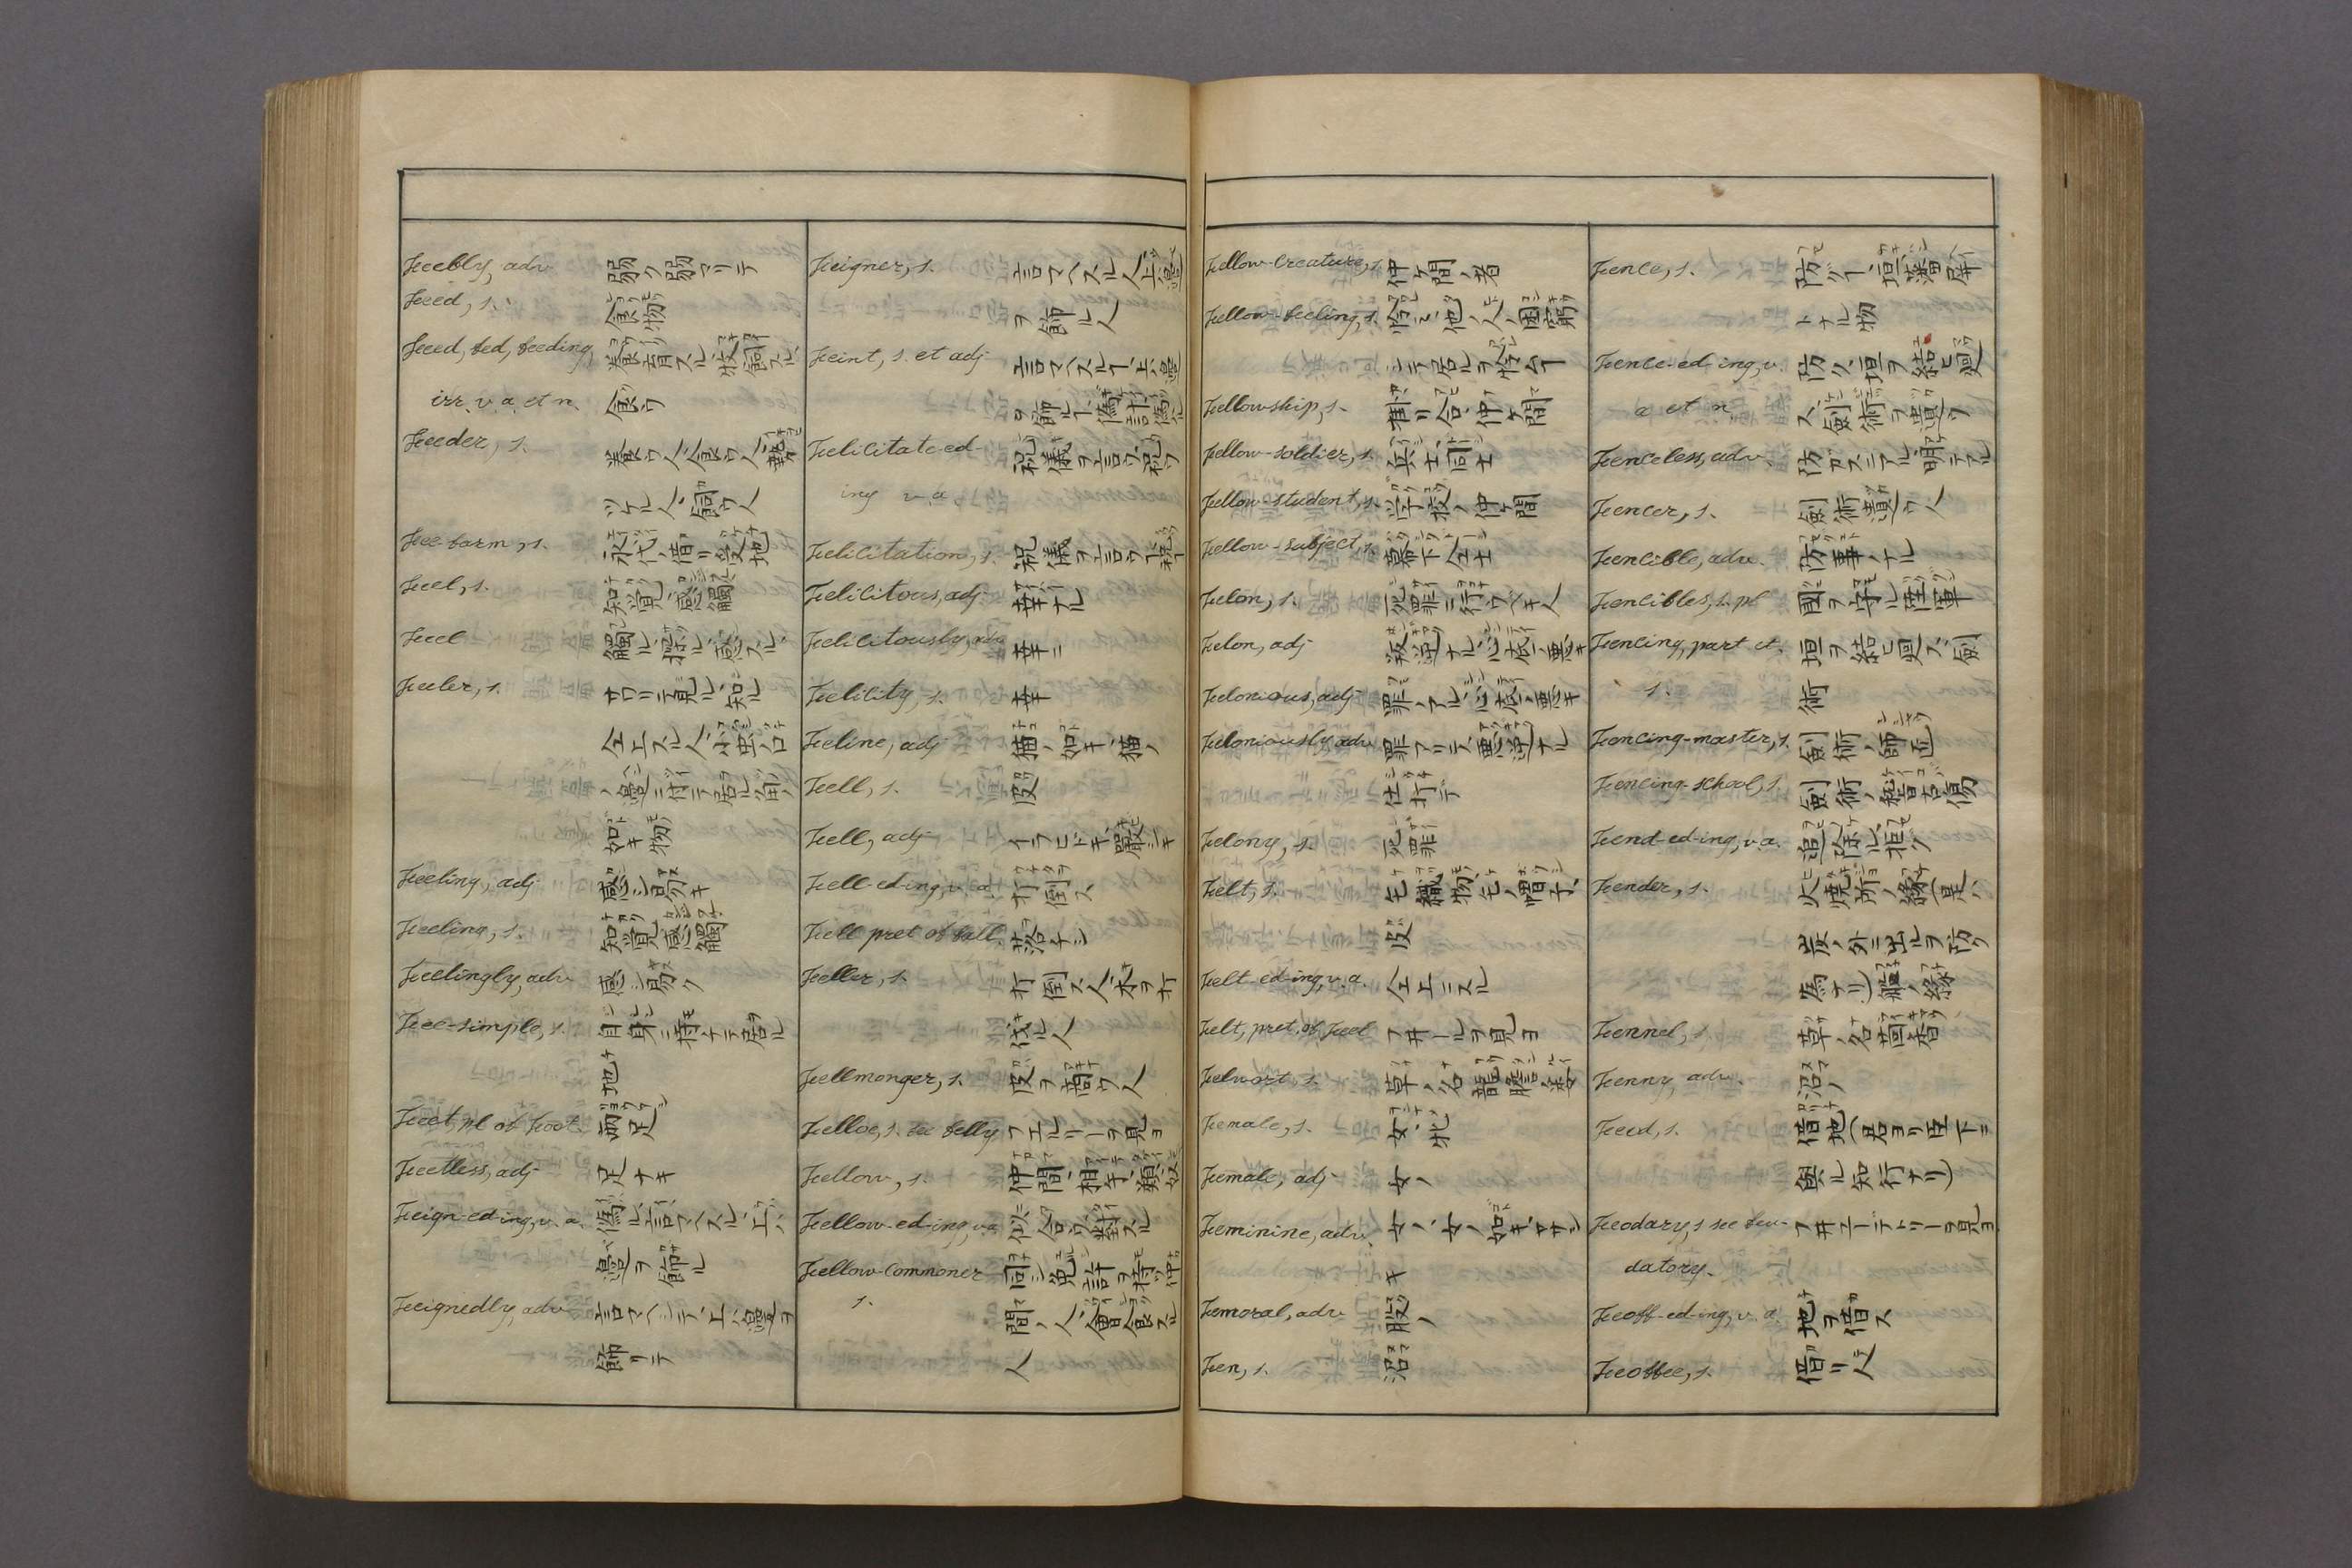 Feebly, adv 弱ク弱マリテ
Feed, s. 食物
Feed, fed, feeding, 養育スル、牧飼スル、
irr. v. a. et n. 食ウ
Feeder, s. 養ウ人、食ウ人、勢
ツケル人、飼ウ人
Fee-farm, s. 永代ノ借リ受地
Feel, s. 知覚、感觸
Feel 觸ル、探ル、感スル、
Feeler, s. サワリテ見ル、知ル
仝上スル人、小虫ノ口
ノ邉ニ付テ居ル角ノ
如キ物
Feeling, adj 感シ易キ
Feeling, s. 知覚、感觸
Feelingly, adv 感シ易ク
Fee-simple, s. 自身ニ持テ居ル
地
Feet, pl of Foot. 両足
Feetless, adj 足ナキ
Feign-ed-ing, v. a. 偽ル、言マヘスル、上
邉ヲ飾ル
Feignedly, adv 言マヘシテ、上邉ヲ
飾リテ
Feigner, s. 言マヘスル人、上邉
ヲ飾ル人
Feint, s. et adj 言マヘスルヿ、上邉
ヲ飾ルヿ、偽計、偽ル
Felicitate-ed- 祝儀ヲ言ウ、祝ウ
ing v a.
Felicitation, s. 祝儀ヲ言ウヿ、祝
Felicitous, adj 幸ナル
Felicitously, adv 幸ニ
Felicity, s. 幸
Feline, adj 猫ノ如キ、猫ノ
Fell, s. 皮
Fell, adj イラヒドキ、嚴シキ
Fell-ed-ing, v. a. 打倒ス
Fell pret of fall. 落チシ
Feller, s. 打倒ス人、木ヲ打
伐ル人
Fellmonger, s. 皮ヲ商ウ人
Felloe, s. see felly フエルリーヲ見ヨ
Fellow, s. 仲間、相手、類、奴
Fellow-ed-ing, v a 似合ウ、對スル
Fellow-commoner 同シ免許ヲ持ツ仲
s. 間ノ人、會食スル
人
Fellow-creature, s. 仲ケ間ノ者
Fellow-feeling, s. 怜ミ、他ノ人ノ困窮
シテ居ルヲ怜ムヿ
Fellowship, s. 組リ合、仲ケ間
Fellow-soldier, s. 兵士同士
Fellow-student, s. 学校ノ仲ケ間
Fellow-subject, s. 幕下仝士
Felon, s. 死罪ニ行ウベキ人
Felon, adj 叛逆ナル、心底ノ悪キ
Felonious, adj 罪ノアル、心底ノ悪キ
Feloniously, adv 罪アリテ、悪逆ナル
仕打テ
Felony, s. 死罪
Felt, s. 毛織物、毛ノ帽子、
皮
Felt-ed-ing, v. a. 仝上ニスル
Felt, pret. of Feel フヰールヲ見ヨ
Felwort, s. 草ノ名龍膽ノ類
Female, s. 女、牝
Female, adj 女ノ
Feminine, adv. 女ノ、女ノ如キ、ヤサシ
キ
Femoral, adv 股ノ
Fen, s. 沼
Fence, s. 防ツヿ、垣、藩屏
トナル物
Fence-ed-ing, v. 防ク、垣ヲ結ヒ廻
a et n. ス、劍術ヲ遣ウ
Fenceless, adv. 防ガズニアル、明テアル
Fencer, s. 劍術遣ウ人
Fencible, adv. 防事ノナル
Fencibles, s. pl 國ヲ守ル陸軍
Fencing, part et. 垣ヲ結ヒ廻ス、劍
s. 術
Fencing-master, s. 劍術ノ師匠
Fencing-school, s. 劍術ノ稽古場
Fend-ed-ing, v. a. 追除ル、拒ク
Fender, s. 火焼所ノ縁(是ハ
炭ノ外ニ出ルヲ防ク
為ナリ)艦ノ縁
Fennel, s. 草ノ名茴香
Fenny, adv. 沼ノ
Feod, s. 借地(君ヨリ臣下ニ
與ル知行ナリ)
Feodary, s see feu- フヰユーデトリーヲ見ヨ
datory.
Feoff-ed-ing, v. a. 地ヲ借ス
Feoffee, s. 借リ人